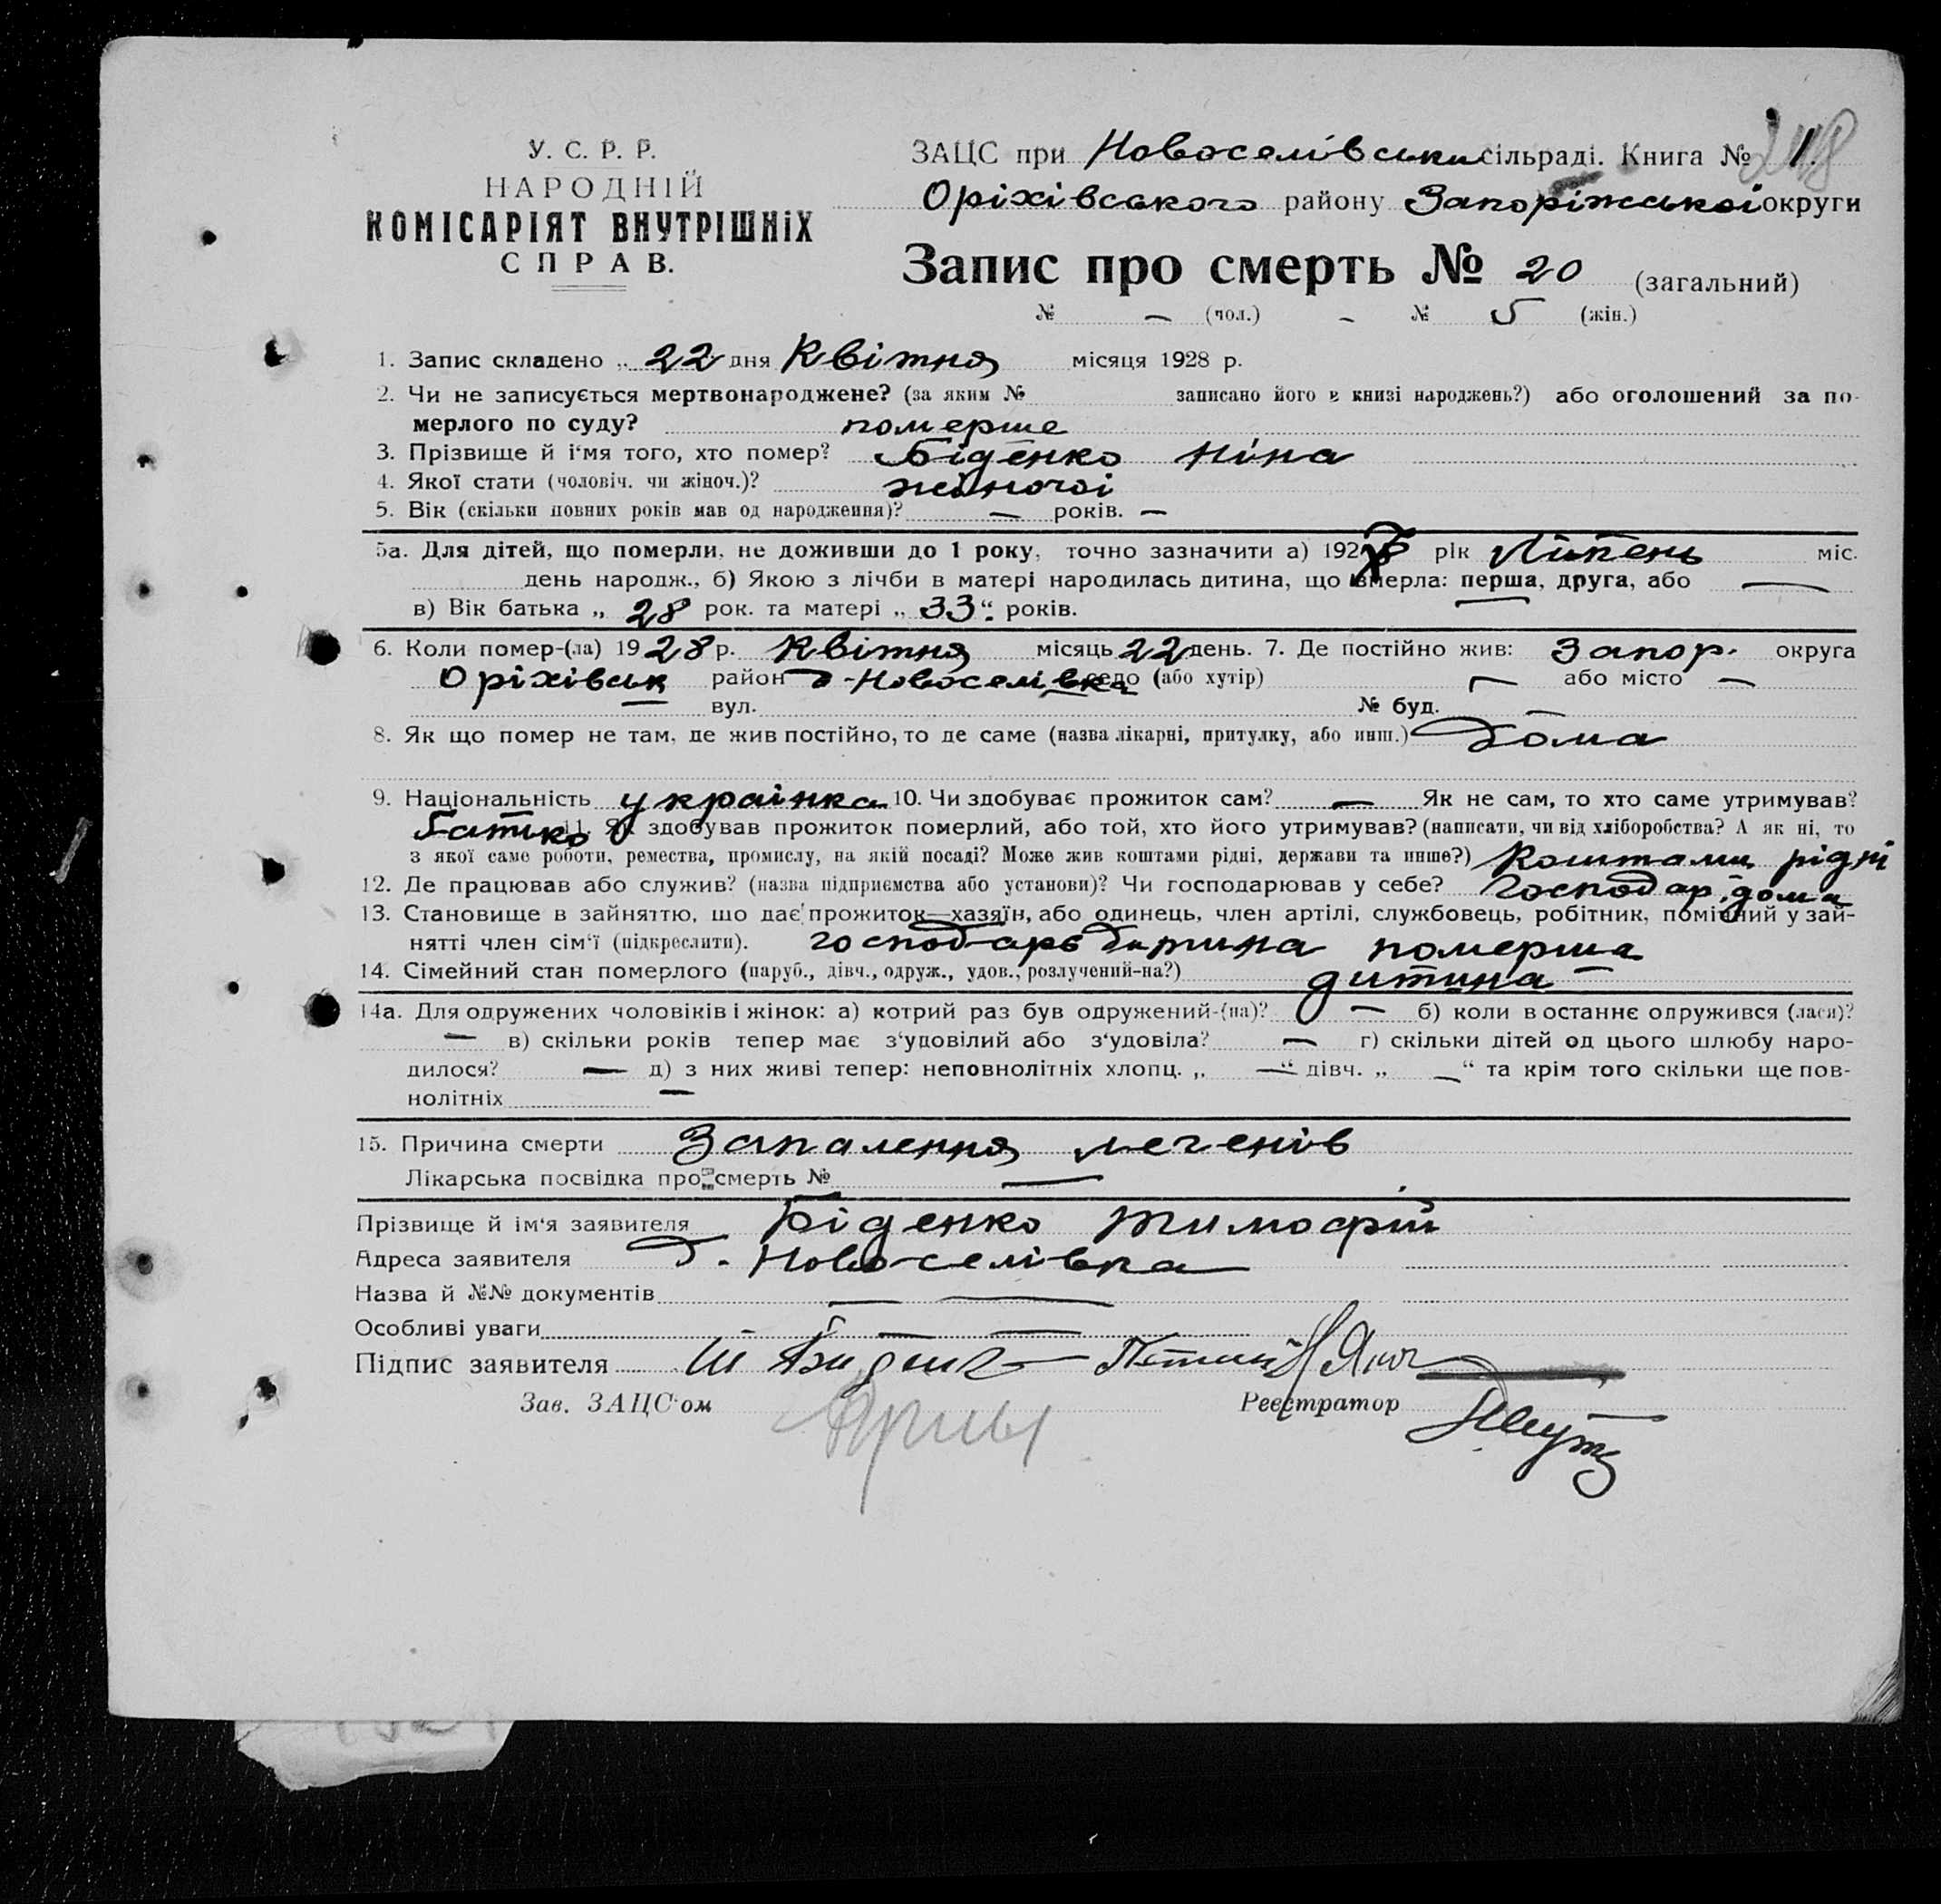 У. С. Р. Р.
НАРОДНІЙ
КОМІСАРІЯТ ВНУТРІШНІХ
СПРАВ.
ЗАЦС при Новоселівськи сільраді. Книга № 1.
Оріхівського району Запоріжської округи
Запис про смерть № 20 (загальний)
№ — (чол.) - № 5 (жін.)
1. Запис складено „ 22 дня Квітня місяця 1928 р.
2. Чи не записується мертвонароджене? (за яким № записано його в книзі народжень?) або оголошений за по-
мерлого по суду? померше
3. Прізвище й і'мя того, хто помер? Біденко Ніна
4. Якої стати (чоловіч. чи жіноч.)? жіночоі
5. Вік (скільки повних років мав од народження)? — років. —
5а. Для дітей, що померли, не доживши до 1 року, точно зазначити а) 192 рік Липень міс.
день народж., б) Якою з лічби в матері народилась дитина, що вмерла: перша, друга, або —
в) Вік батька „ 28 рок. та матері „ 33“. років.
6. Коли помер-(ла) 1928 р. Квітня місяць 22 день. 7. Де постійно жив: Запор. округа
Оріхівськ район д-Новоселівка село (або хутір) — або місто —
— вул. № буд. —
8. Як що помер не там, де жив постійно, то де саме (назва лікарні, притулку, або инш.) Дома
9. Національність украінка 10. Чи здобуває прожиток сам? — Як не сам, то хто саме утримував?
Батько 11. Як здобував прожиток померлий, або той, хто його утримував? (написати, чи від хліборобства? А як ні, то
з якої саме роботи, ремества, промислу, на якій посаді? Може жив коштами рідні, держави та инше?) Коштами рідні
12. Де працював або служив? (назва підприємства або установи)? Чи господарював у себе? господар. дома
13. Становище в зайняттю, що дає прожиток—хазяїн, або одинець, член артілі, службовець, робітник, помічний у зай-
нятті член сім'ї (підкреслити). господарь дитина померша
14. Сімейний стан померлого (паруб., дівч., одруж., удов., розлучений-на?) дитина —
14а. Для одружених чоловіків і жінок: а) котрий раз був одружений-(на)? — б) коли в останнє одружився (лася)?
— в) скільки років тепер має з'удовілий або з'удовіла? — г) скільки дітей од цього шлюбу наро-
дилося? — д) з них живі тепер: неповнолітніх хлопц. „ —“ дівч. „ —“ та крім того скільки ще пов-
нолітніх —
15. Причина смерти Запалення легенів
Лікарська посвідка про смерть № —
Прізвище й ім'я заявителя Біденко Тимофій
Адреса заявителя д. Новоселівка
Назва й №№ документів — —
Особливі уваги — — —
Підпис заявителя
Зав. ЗАЦС'ом Реєстратор